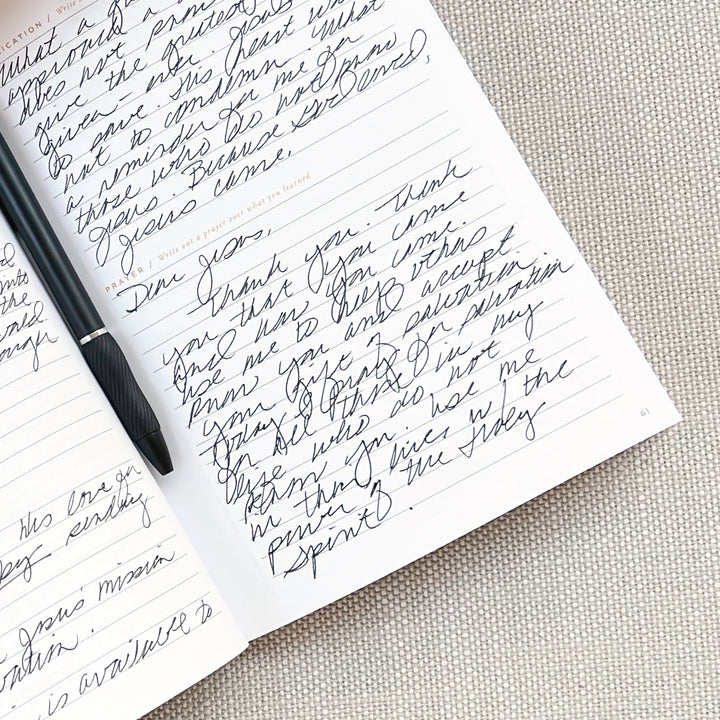 ld
into
the
world
ough
His love in
by sending
Jesus' mission
vation.
is available to
ICATION / Write
What a
approved a
does not
give the
given - over. Jesus
to save. His heart was
not to condemn. What
a reminder for me for
those who do not know
Jesus. Because God loved,
Jesus came.
PRAYER / Write out a prayer over what you learned
Dear Jesus,
Thank you. Thank
you that you came
and how you came.
Use me to help others
know you and accept
your gift of salvation.
Today I pray for salvation
for all those in my
life who do not
know you. Use me
in their lives w/ the
power of the Holy
Spirit.
61